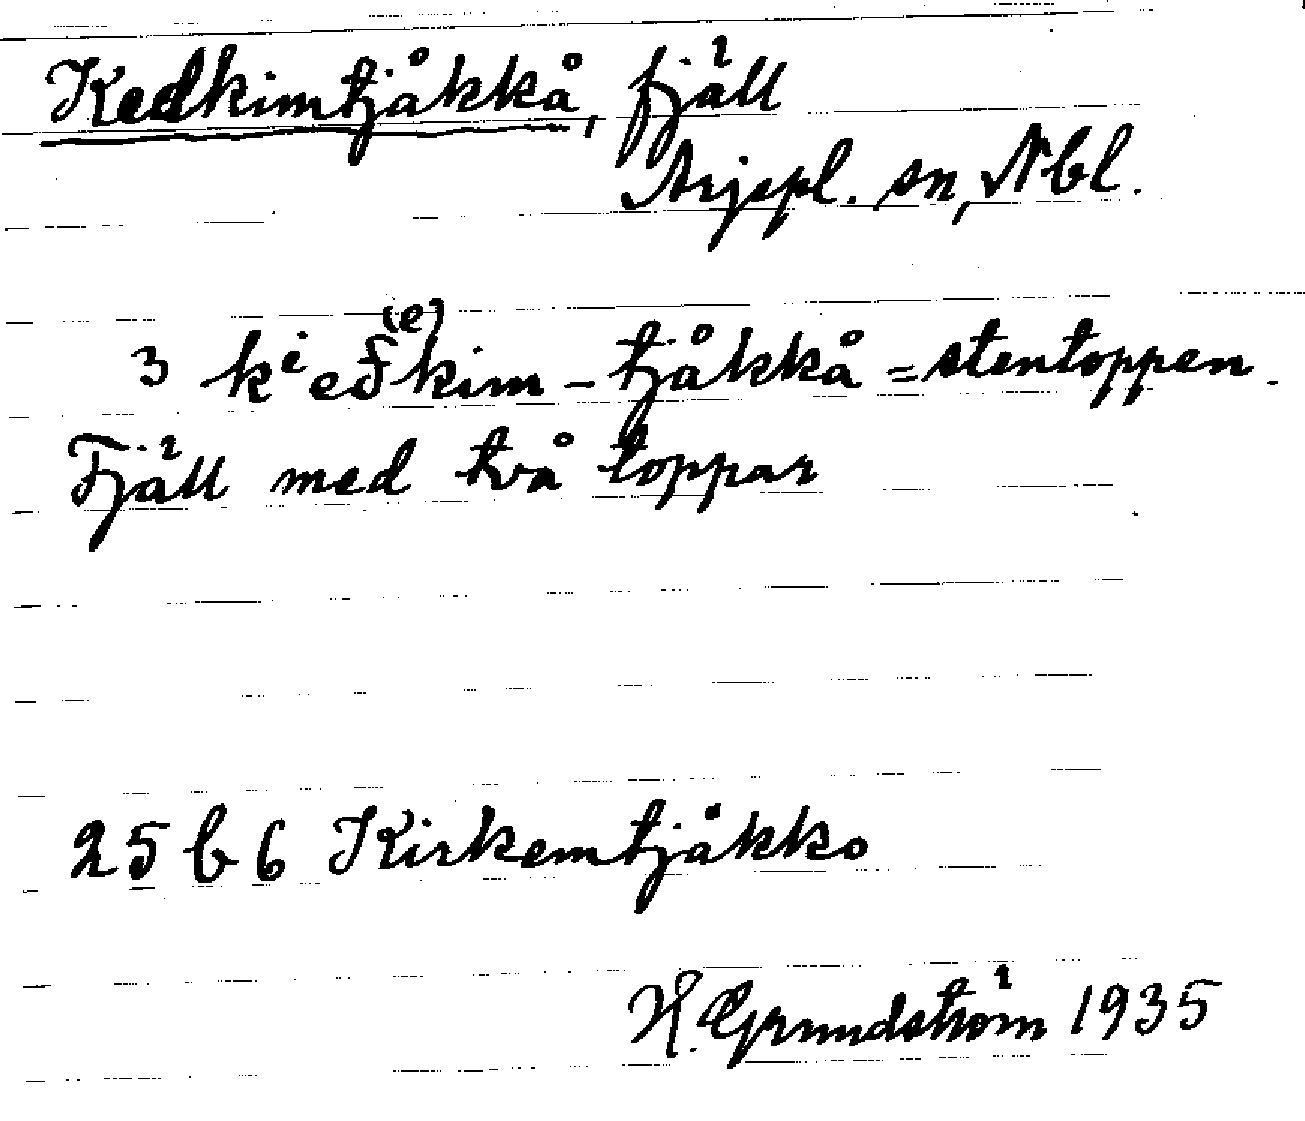 Kedkimtjåkkå, fjäll
Arjepl. sn, Nbl.
3 kⁱeđ⁽ᵉ⁾kim - tjåkkå = stentoppen.
Fjäll med två toppar
25 b 6 Kirkemtjåkko
H. Grundström 1935